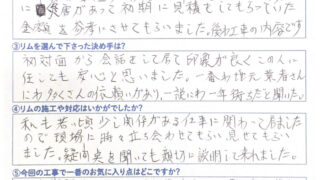 に災害があって初期に見積をしてもらっていた
金額を参考にさせてもらいました。後の工事の内容です
③リムを選んで下さった決め手は?
初対面から会話をして居て印象が良くこの人に
任しても安心と思いました。一番わ地元業者さん
にわたくさんの依頼があり、一説にわ一年待ちだと聞いた。
④リムの施工や対応はいかがでしたか?
私も若い頃少し関係がある仕事に関わって居ました
ので現場に時々立ち会わせてもらい見せてもらい
ました。疑問点を聞いても親切に説明して来れました。
⑤今回の工事で一番のお気に入り点はどこですか?